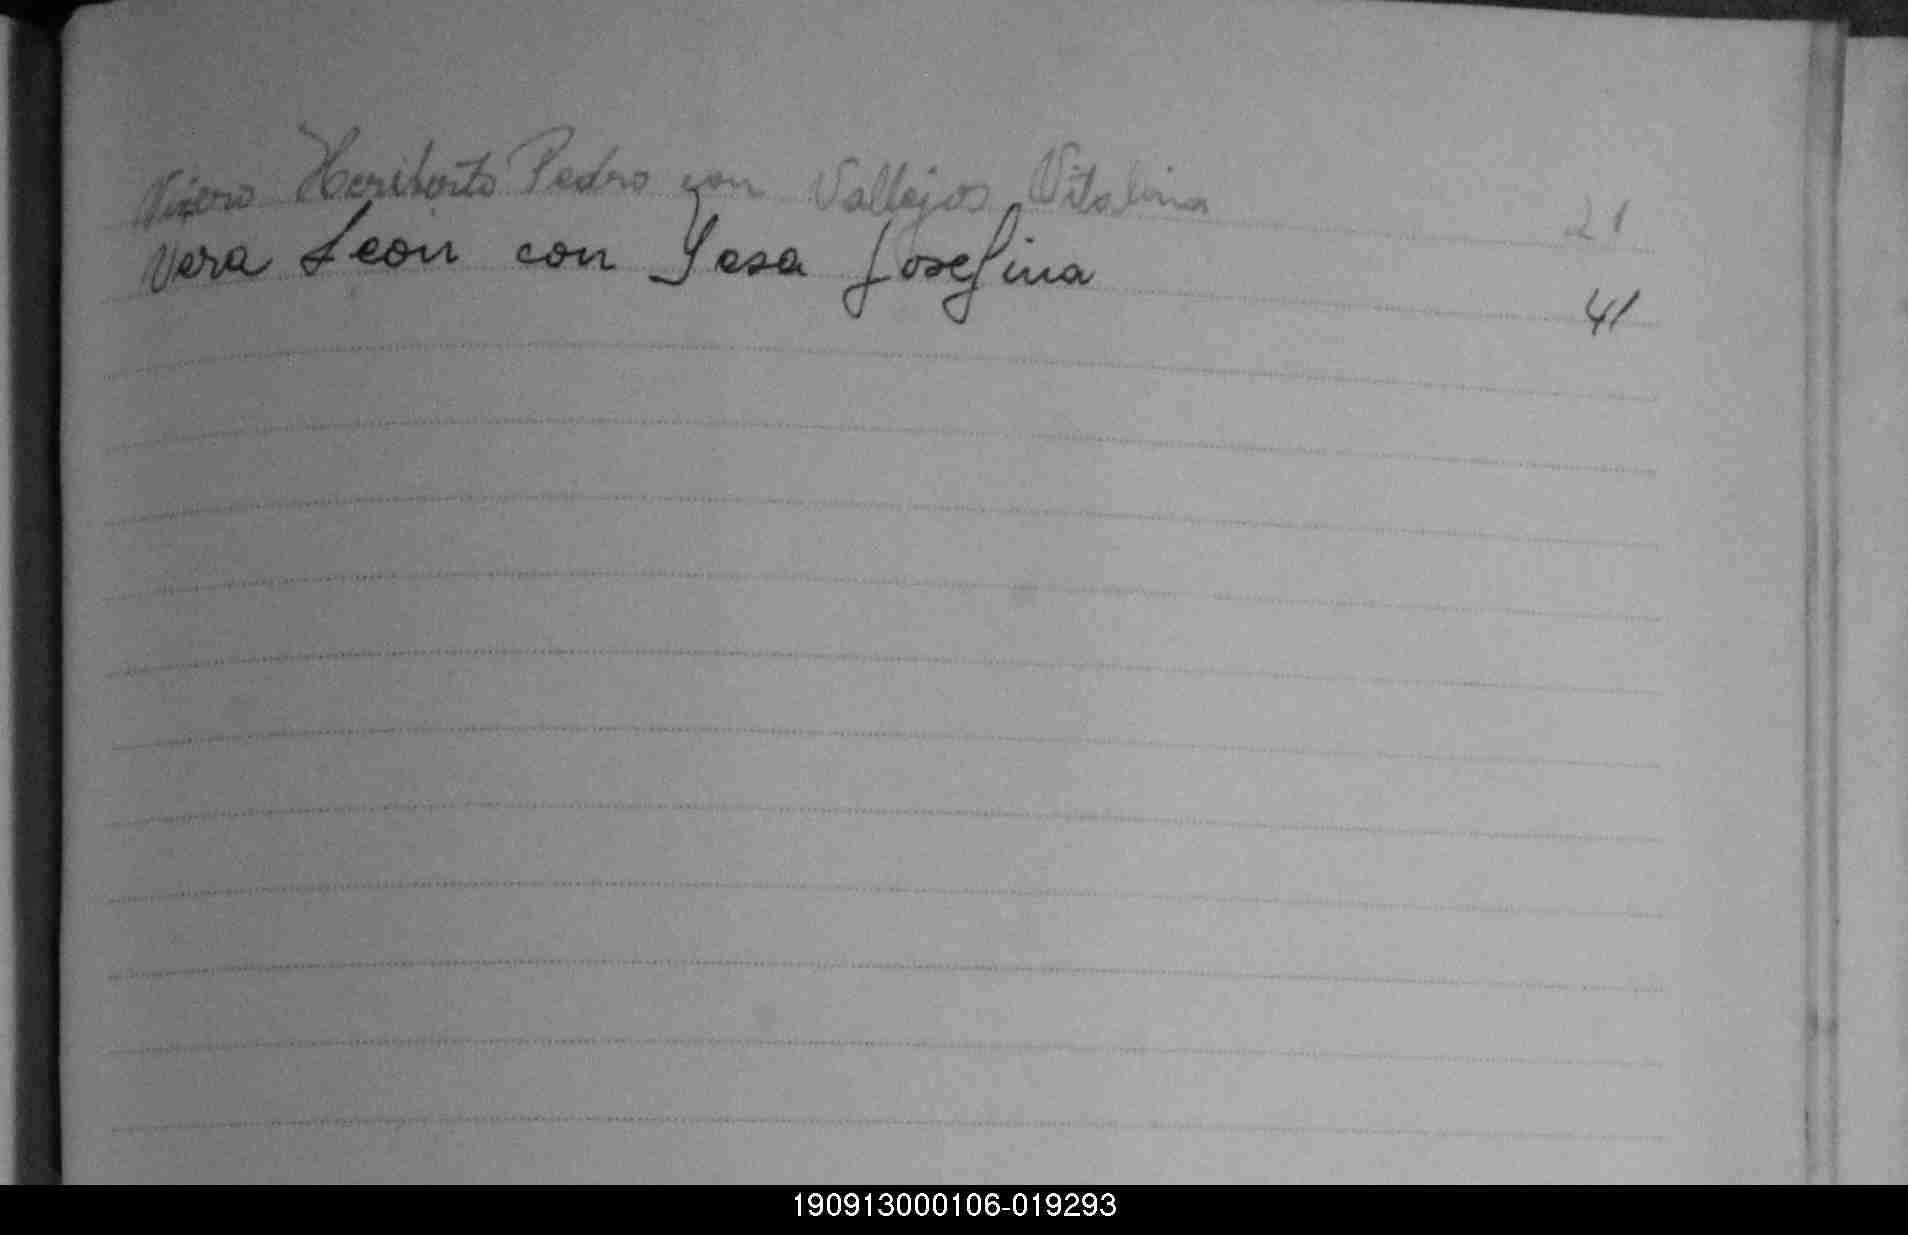 Heriberto Pedro con Vallejos Vitalina 21
Vera Leon con Sesa Josefina 41
190913000106-019293